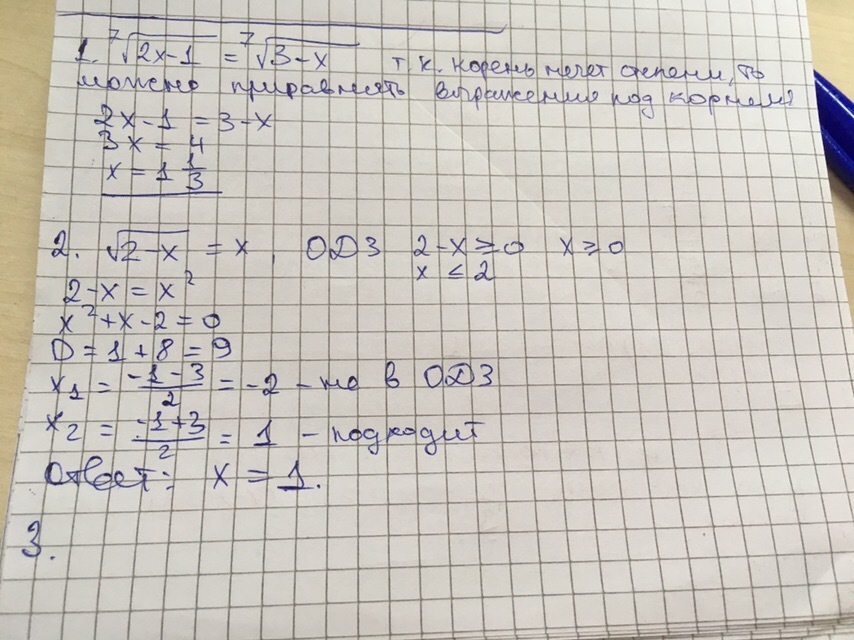 1. ⁷√(2x-1) = ⁷√(3-x) т.к. корень нечет степени, то
можно приравнять выражения под корнем
2x-1 = 3-x
3x = 4
x = 1 1/3
2. √(2-x) = x, ОДЗ 2-x ≥ 0 x ≥ 0
x ≤ 2
2-x = x²
x²+x-2=0
D = 1+8 = 9
x₁ = (-1-3)/2 = -2 - не в ОДЗ
x₂ = (-1+3)/2 = 1 - подходит
Ответ: x = 1.
3.